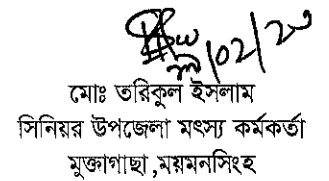 /02/20
মোঃ তরিকুল ইসলাম
সিনিয়র উপজেলা মৎস্য কর্মকর্তা
মুক্তাগাছা,ময়মনসিংহ